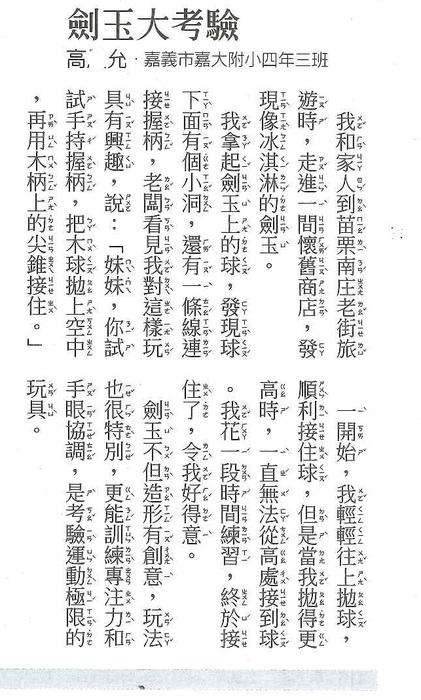 劍玉大考驗
高 允・嘉義市嘉大附小四年三班
我和家人到苗栗南庄老街旅
遊時，走進一間懷舊商店，發
現像冰淇淋的劍玉。
我拿起劍玉上的球，發現球
下面有個小洞，還有一條線連
接握柄，老闆看見我對這樣玩
具有興趣，說：「妹妹，你試
試手持握柄，把木球拋上空中
，再用木柄上的尖錐接住。」
一開始，我輕輕往上拋球，
順利接住球，但是當我拋得更
高時，一直無法從高處接到球
。我花一段時間練習，終於接
住了，令我好得意。
劍玉不但造形有創意，玩法
也很特別，更能訓練專注力和
手眼協調，是考驗運動極限的
玩具。